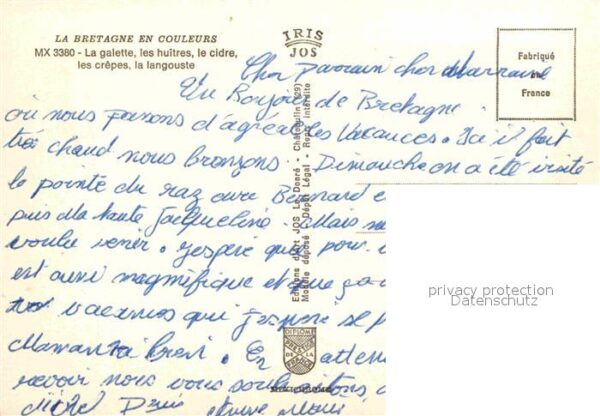 LA BRETAGNE EN COULEURS
MX 3380 - La galette, les huîtres, le cidre,
les crêpes, la langouste
IRIS
JOS
Fabriqué
en
France
Editions d'art JOS Le Doaré - Châteaulin (29)
Modèle déposé - Dépôt Légal - Repr. interdite
Cher parrain cher Marraine
Un Bonjour de Bretagne
où nous passons d'agréables Vacances. Ici il fait
très chaud nous bronzons. Dimanche on a été visité
la pointe du raz avec Bernard e
puis Ma tante Jacqueline. Mais
voulu venir. j'espère que pour
est aussi magnifique et que
vacances qui j'espère se p
Maman ira bien. En atten
recevoir nous vous souhaitons
Michel Denis
privacy protection
Datenschutz
DIPLOME
PRESTIGE
DE LA
FRANCE